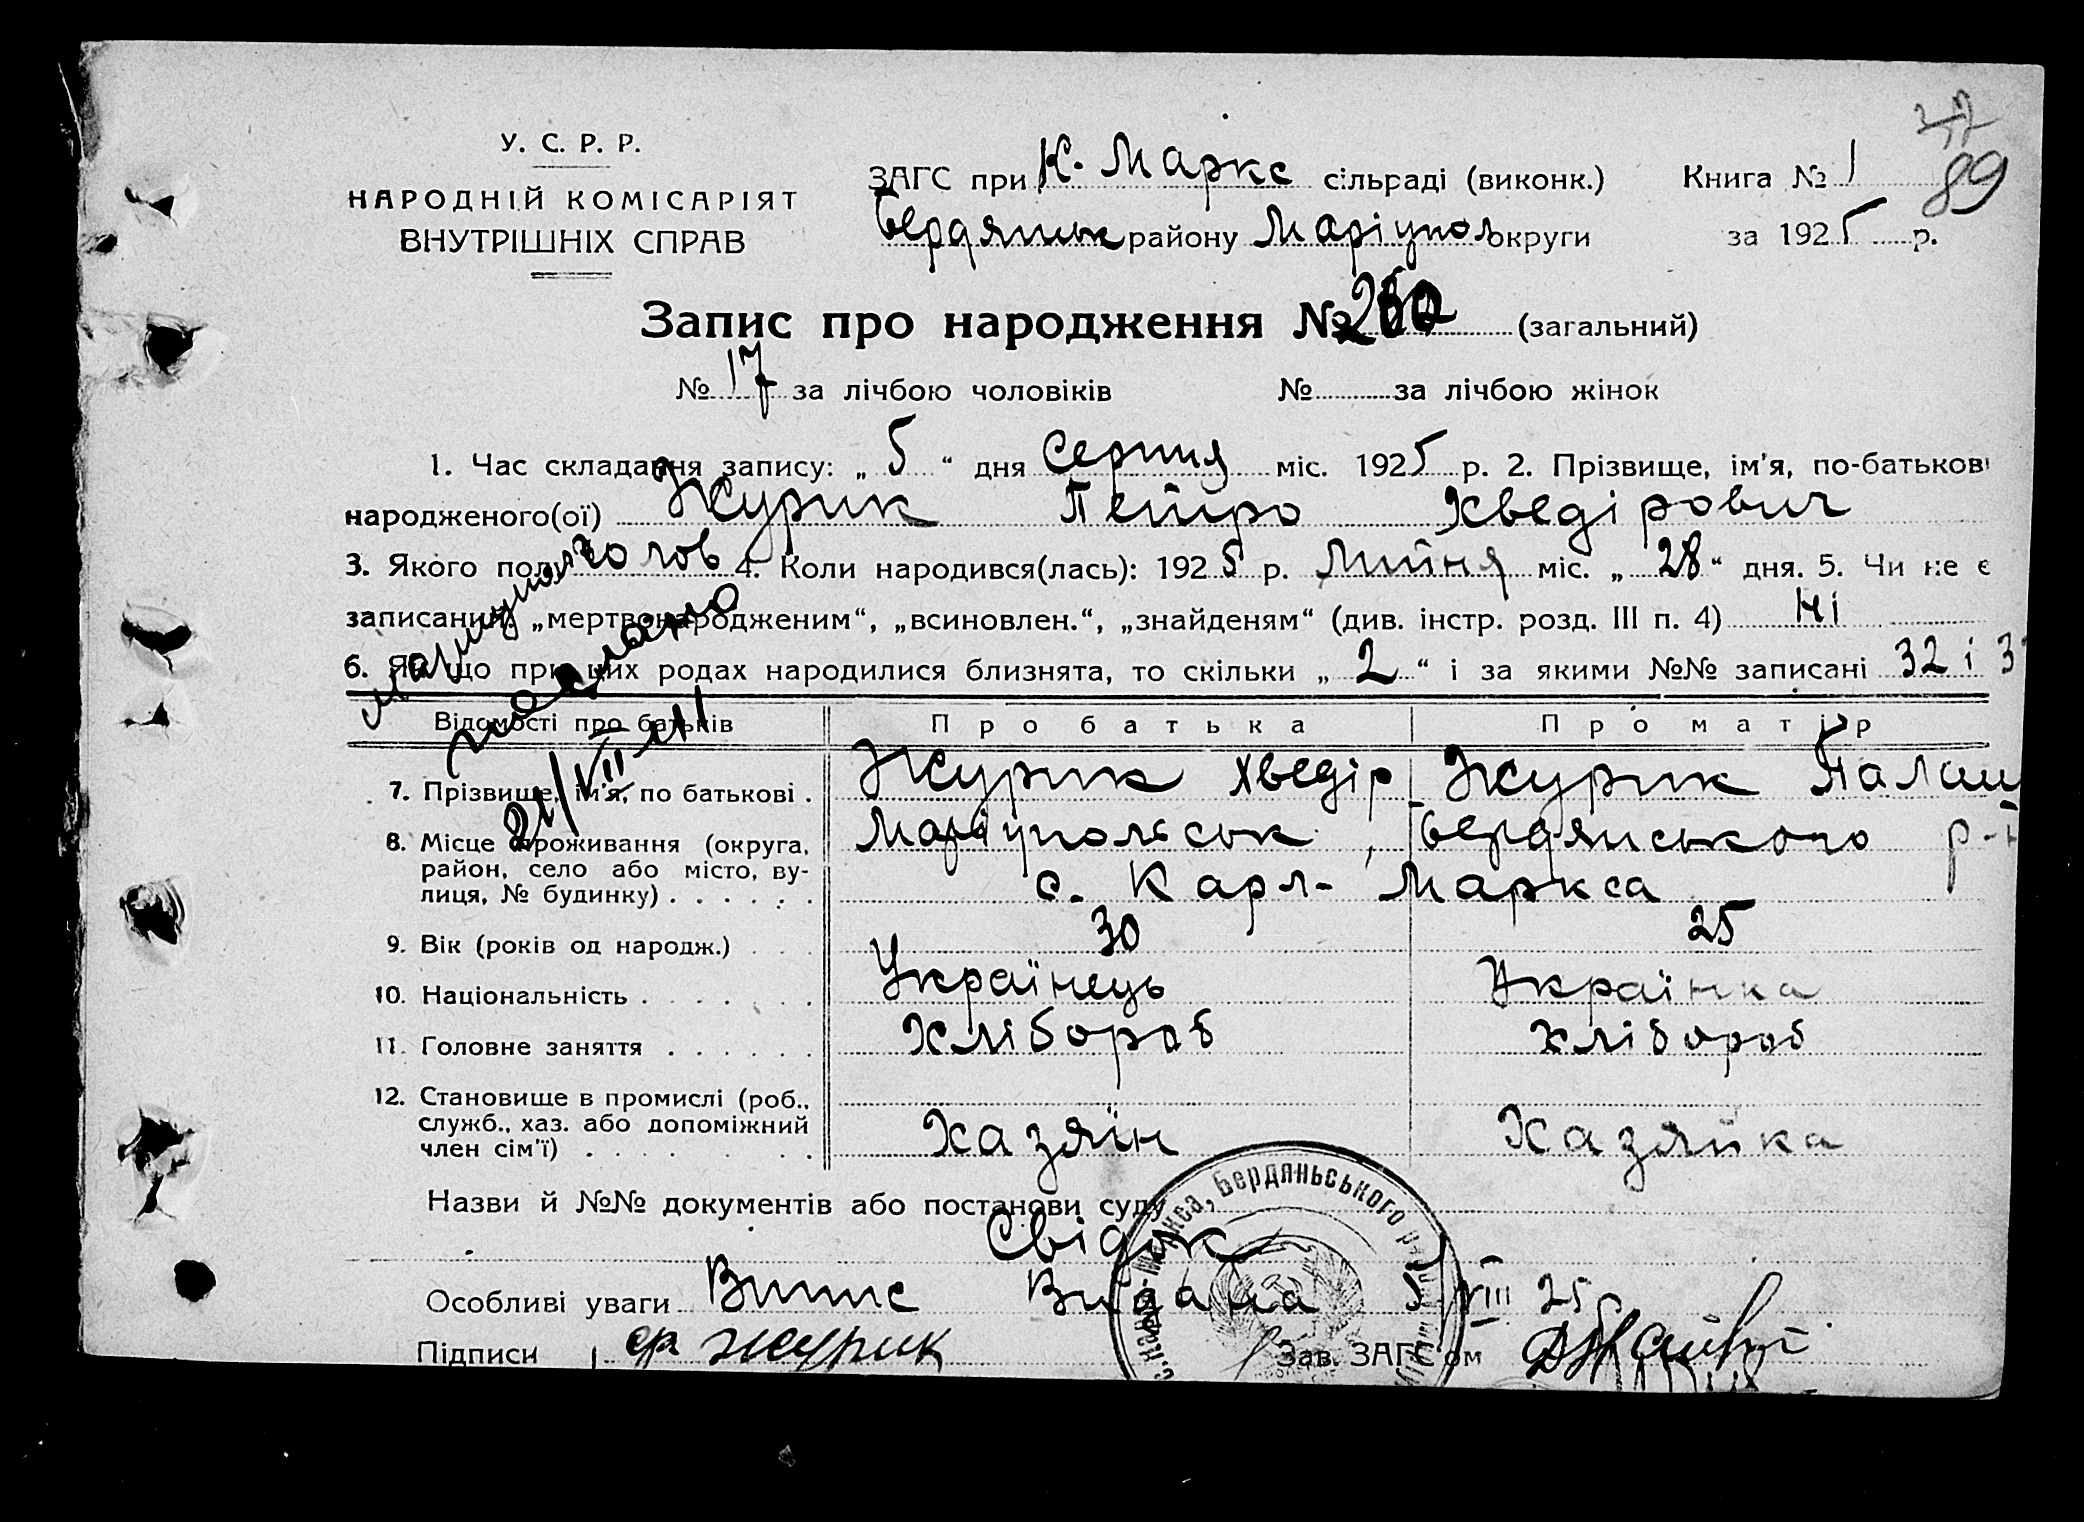 37
89
У. С. Р. Р.
НАРОДНІЙ КОМІСАРІЯТ
ВНУТРІШНІХ СПРАВ
ЗАГС при К. Маркс сільраді (виконк.) Книга № 1
Бердянськ району Маріупол округи за 1925 р.
Запис про народження № (загальний)
№ 17 за лічбою чоловіків № за лічбою жінок
1. Час складання запису: „ 5 “ дня Серпня міс. 1925 р. 2. Прізвище, ім'я, по-батькові
народженого(ої) Журик Петро Хведірович
3. Якого полу чолов 4. Коли народився(лась): 1925 р. Липня міс. „ 28 “ дня. 5. Чи не є
записаний: „мертвонародженим“, „всиновлен.“, „знайденям“ (див. інстр. розд. III п. 4) Ні
6. Якщо при цих родах народилися близнята, то скільки „ 2 “ і за якими №№ записані 32 і 3
Відомості про батьків Про батька Про матір
7. Прізвище, ім'я, по батькові . Журик Хведір Журик Палаш
8. Місце проживання (округа, Маріупольськ, Бердянського р-н
район, село або місто, ву-
лиця, № будинку) . . . . . . с. Карл-Маркса
9. Вік (років од народж.) . . . 30 25
10. Національність . . . . . Українець Українка
11. Головне заняття . . . . . . Хлібороб Хлібороб
12. Становище в промислі (роб.,
служб., хаз. або допоміжний
член сім'ї) . . . . . . Хазяїн Хазяйка
Назви й №№ документів або постанови суду
Свідок
Особливі уваги Випис Видана 5 VIII 25
Підписи Журик Зав. ЗАГС'ом
21/VII
Маркса, Бердянського р